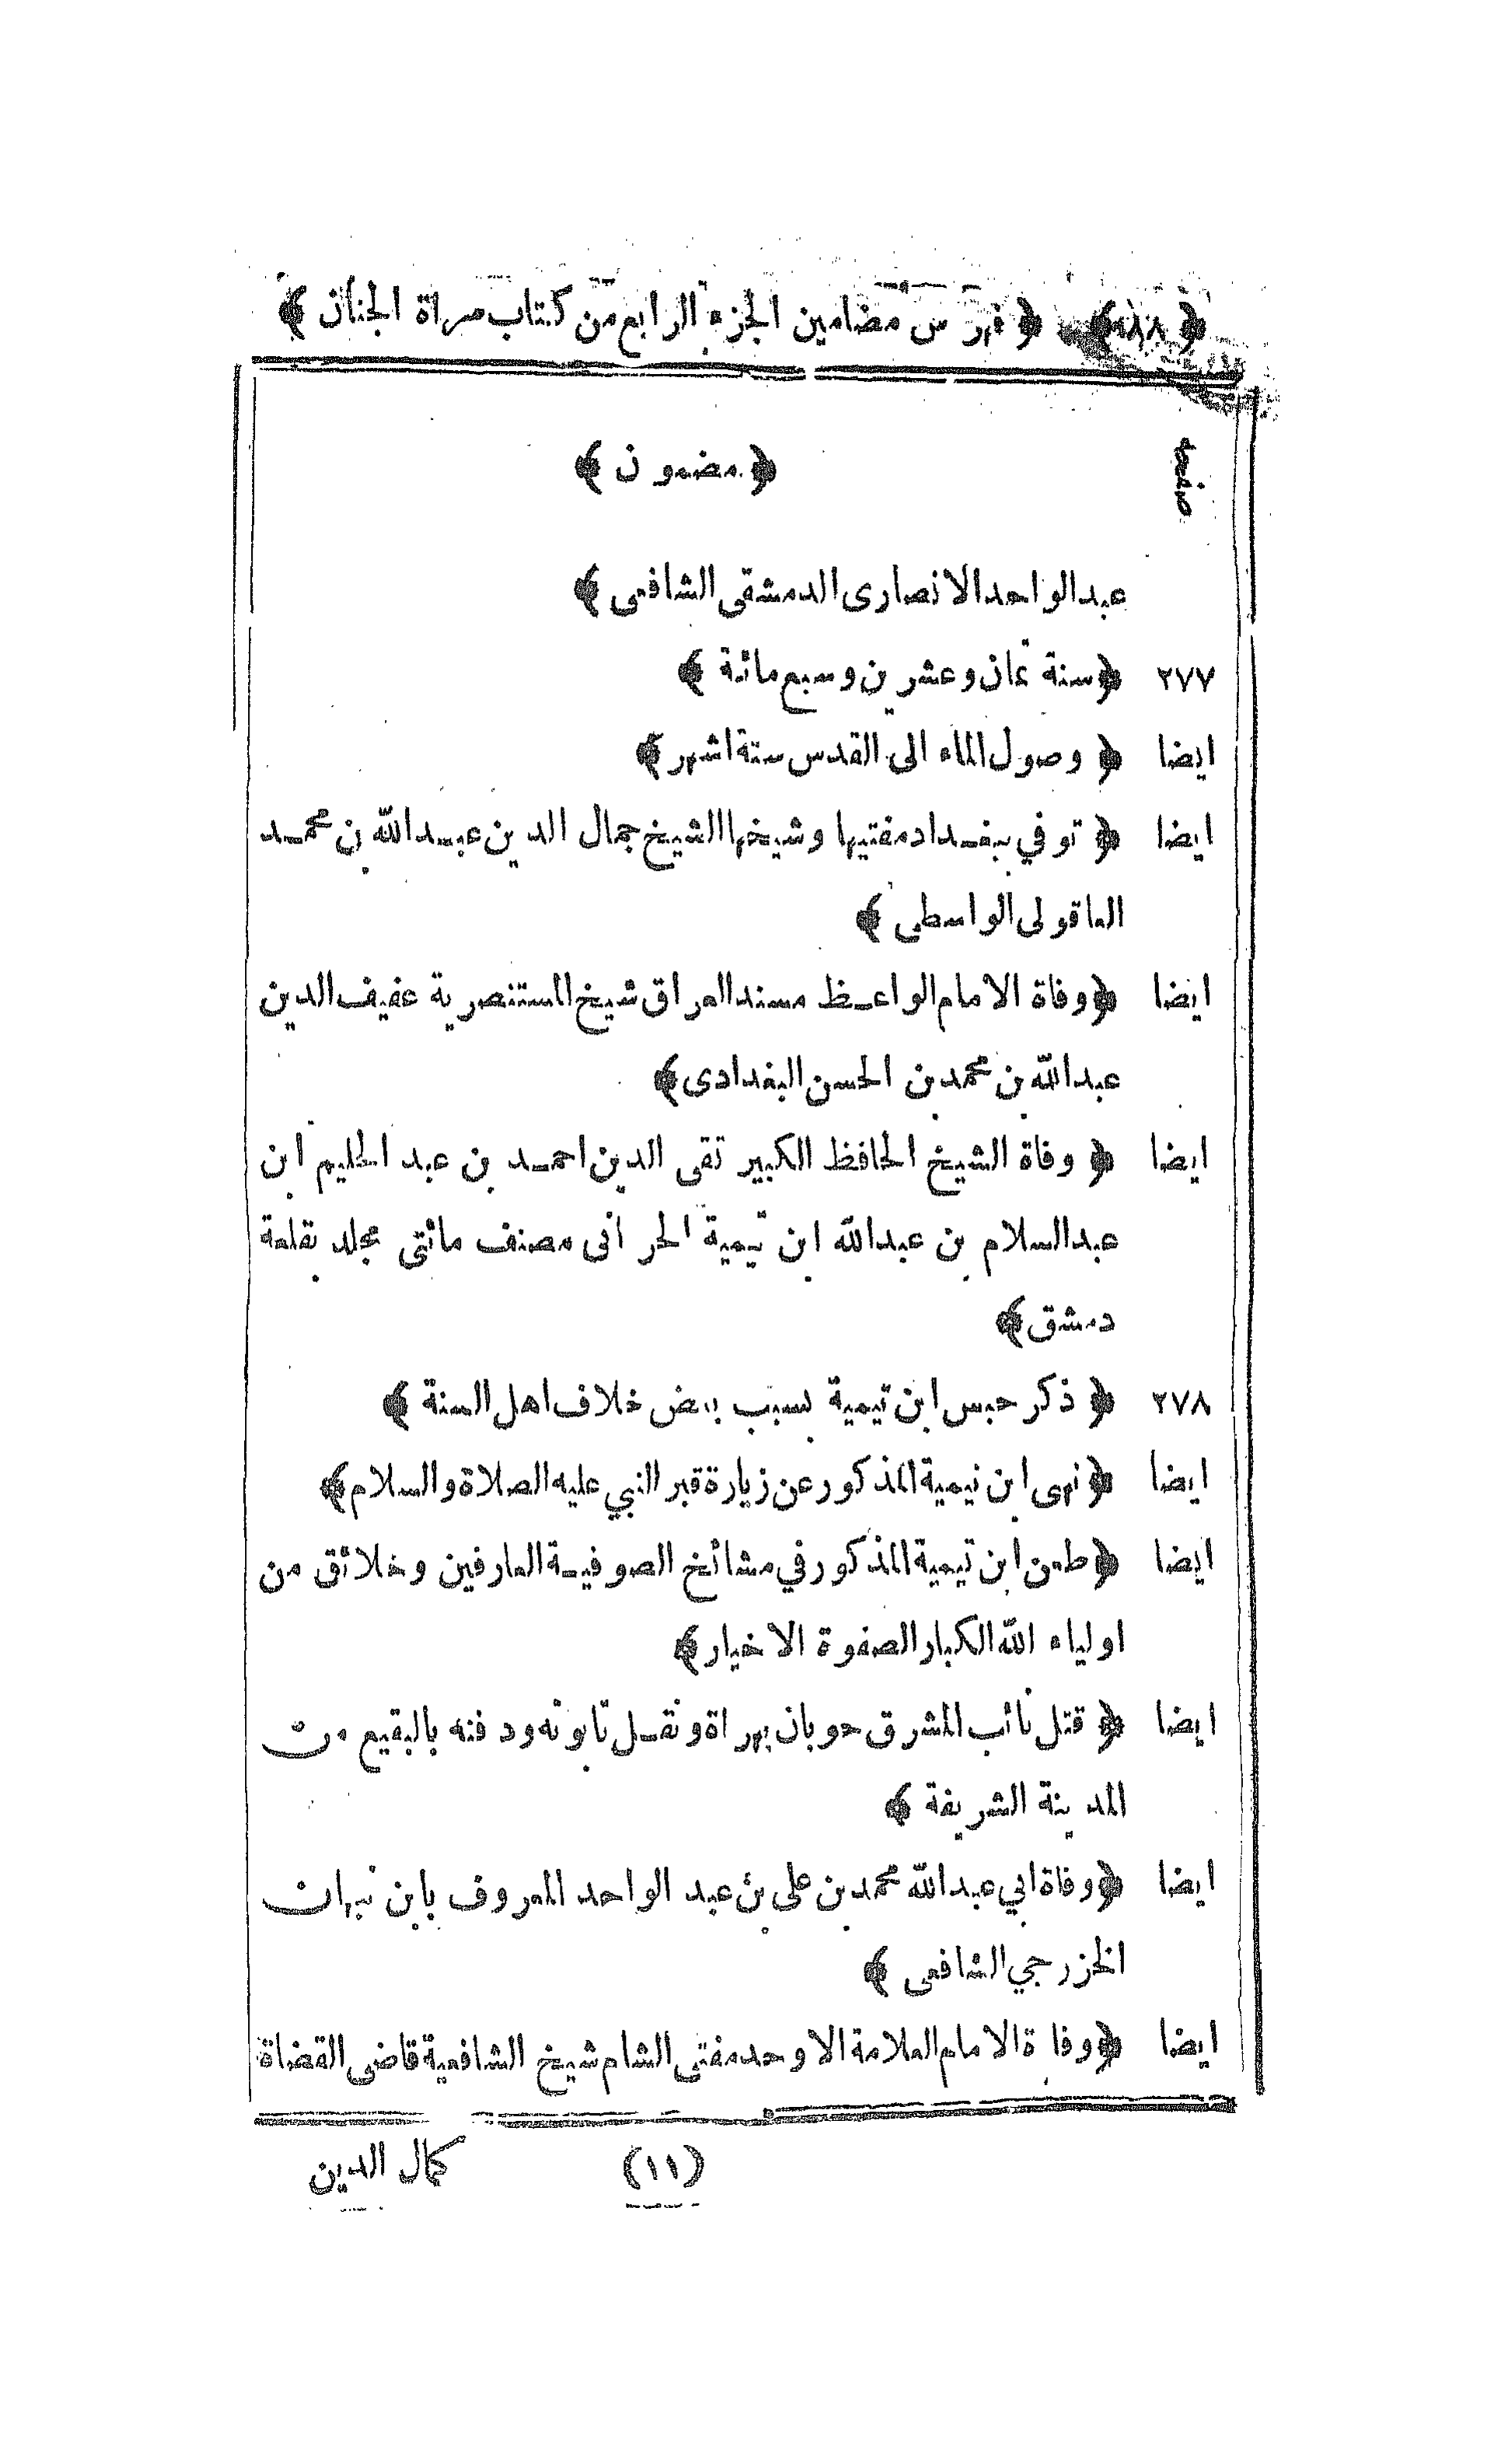 ﴿ ٨٨ ﴾ ﴿ فهرس مضامين الجزء الرابع من كتاب مرآة الجنان ﴾
صفحه ﴿ مضمون ﴾
عبد الواحد الانصارى الدمشقى الشافعى ﴾
٢٧٧ ﴿ سنة ثمان وعشرين وسبع مائة ﴾
ايضا ﴿ وصول الماء الى القدس ستة اشهر ﴾
ايضا ﴿ توفي ببغداد مفتيها وشيخها الشيخ جمال الدين عبد الله بن محمد
العاقولى الواسطى ﴾
ايضا ﴿ وفاة الامام الواعظ مسند العراق شيخ المستنصرية عفيف الدين
عبد الله بن محمد بن الحسن البغدادى ﴾
ايضا ﴿ وفاة الشيخ الحافظ الكبير تقى الدين احمد بن عبد الحليم ابن
عبد السلام بن عبد الله ابن تيمية الحرانى مصنف مائتى مجلد بقلعة
دمشق ﴾
٢٧٨ ﴿ ذكر حبس ابن تيمية بسبب بعض خلاف اهل السنة ﴾
ايضا ﴿ نهى ابن تيمية المذكور عن زيارة قبر النبي عليه الصلاة والسلام ﴾
ايضا ﴿ طعن ابن تيمية المذكور في مشائخ الصوفية العارفين وخلائق من
اولياء الله الكبار الصفوة الاخيار ﴾
ايضا ﴿ قتل نائب المشرق حوبان بهراة ونقل تابوته ودفنه بالبقيع من
المدينة الشريفة ﴾
ايضا ﴿ وفاة ابي عبد الله محمد بن على بن عبد الواحد المعروف بابن نبهان
الخزرجي الشافعى ﴾
ايضا ﴿ وفاة الامام العلامة الاوحد مفتى الشام شيخ الشافعية قاضى القضاة
(١١) كمال الدين